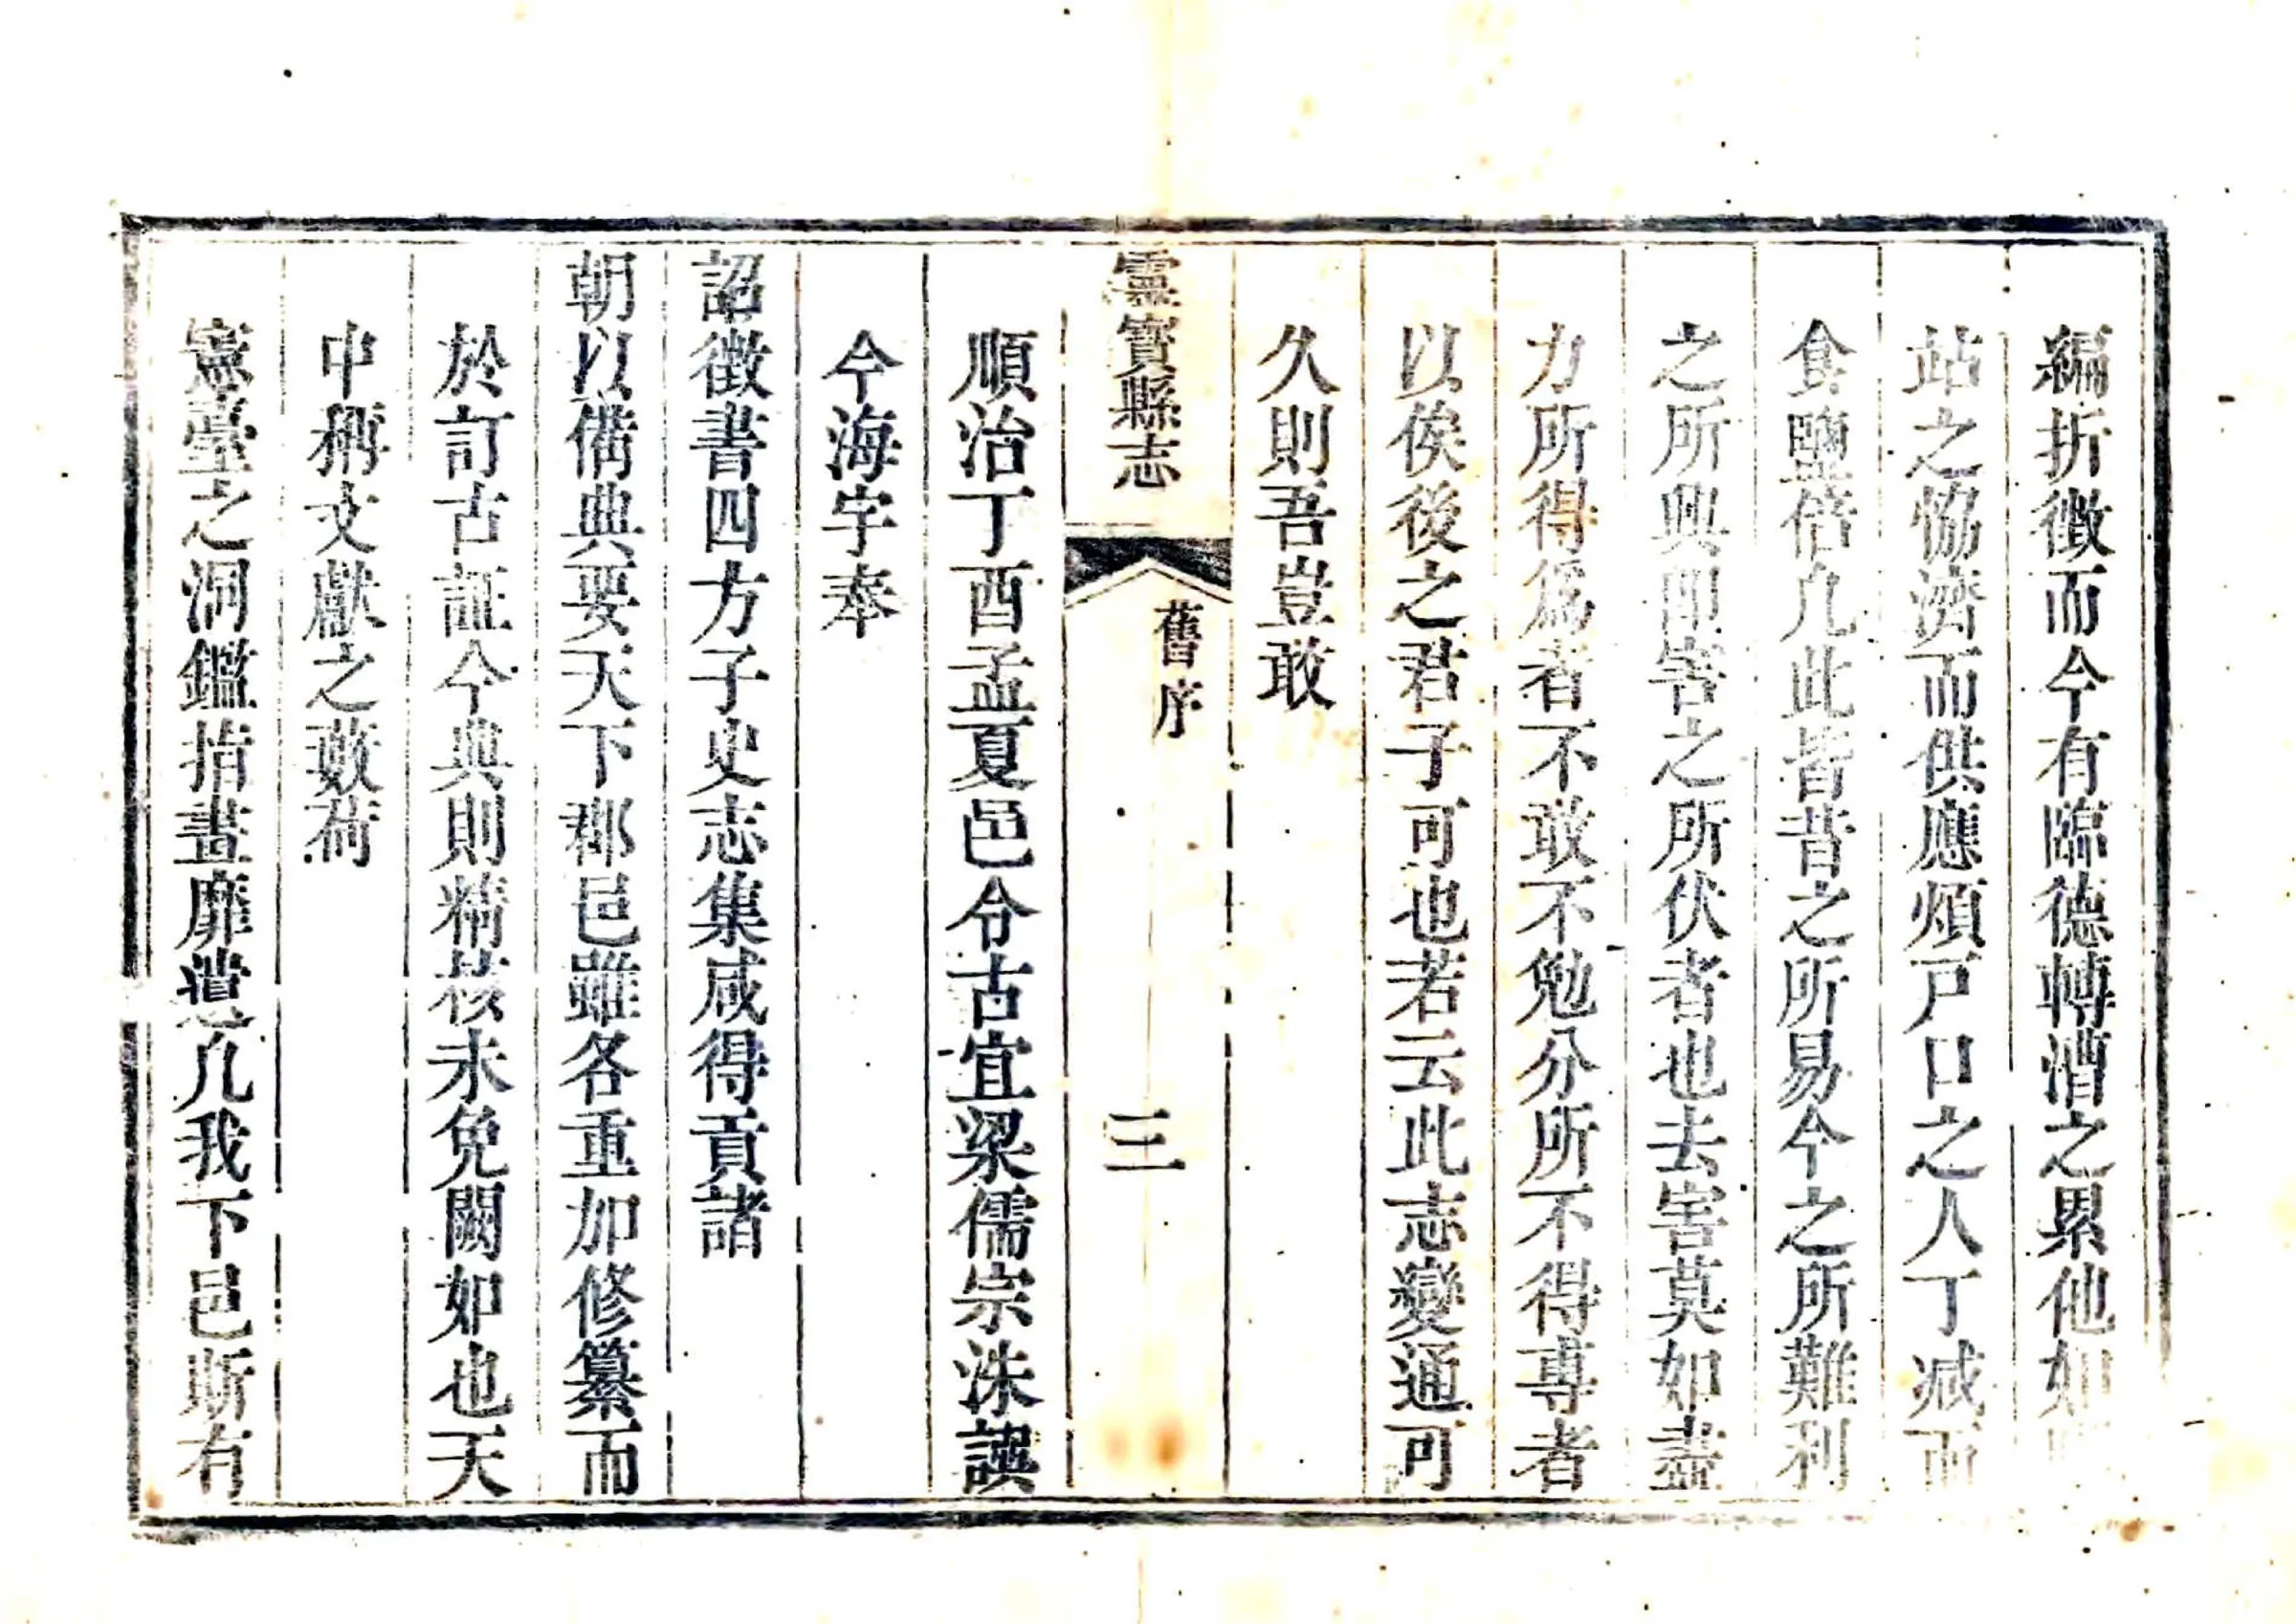 編折徵而今有臨德轉漕之累他如
站之恊濟而供應煩戸口之人丁减而
食鹽倍凡此皆昔之所易今之所難利
之所興即害之所伏者也去害莫如盡
力所得爲者不敢不勉分所不得專者
以俟後之君子可也若云此志變通可
久則吾豈敢
靈寳縣志
舊序
三
順治丁酉孟夏邑令古宜梁儒宗洙譔
今海宇奉
詔徵書四方子史志集咸得貢諸
朝以備典要天下郡邑雖各重加修纂而
於訂古証今典則精核未免闕如也天
中稱文獻之藪荷
憲臺之洞鑑指畫靡遺凡我下邑斯有